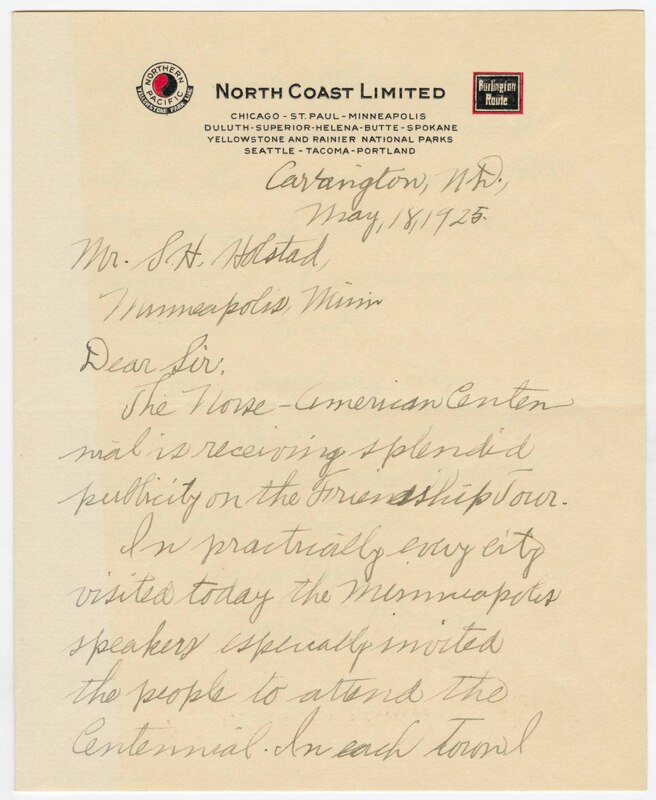 NORTHERN PACIFIC
YELLOWSTONE PARK LINE
NORTH COAST LIMITED
Burlington
Route
CHICAGO - ST. PAUL - MINNEAPOLIS
DULUTH - SUPERIOR - HELENA - BUTTE - SPOKANE
YELLOWSTONE AND RAINIER NATIONAL PARKS
SEATTLE - TACOMA - PORTLAND
Carrington, N.D.,
May, 18, 1925.
Mr. S.H. Holstad,
Minneapolis, Minn
Dear Sir:
The Norse-American Centen
nial is receiving splendid
publicity on the Friendship Tour.
In practically every city
visited today the Minneapolis
speakers especially invited
the people to attend the
Centennial. In each town I